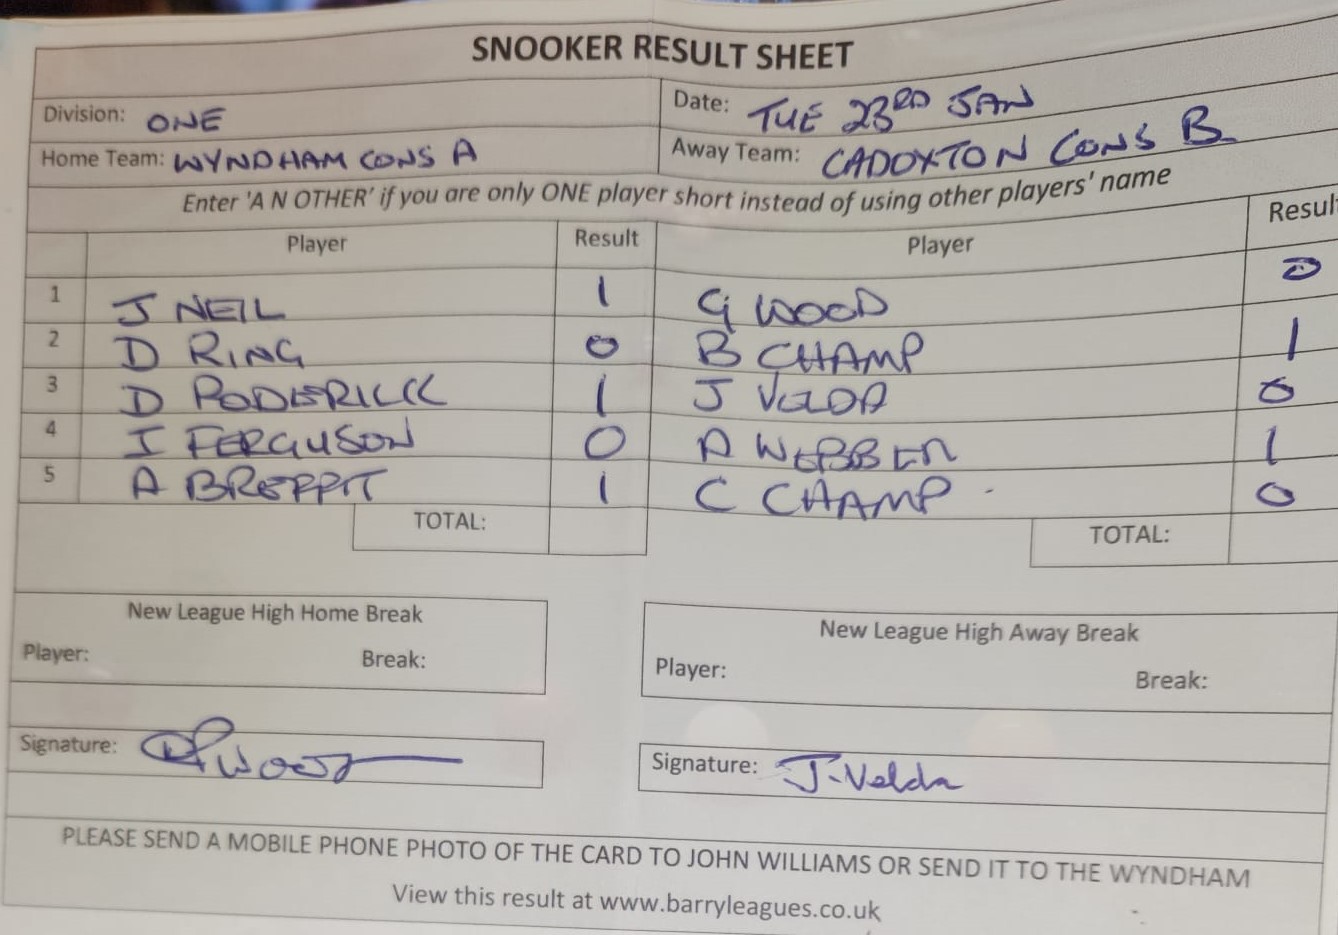 SNOOKER RESULT SHEET
Division: ONE
Date: TUE 23RD JAN
Home Team: WYNDHAM CONS A
Away Team: CADOXTON CONS B
Enter 'A N OTHER' if you are only ONE player short instead of using other players' name
Player Result Player Result
1 J NEIL 1 G WOOD 0
2 D RING 0 B CHAMP 1
3 D RODERICK 1 J VELDA 0
4 I FERGUSON 0 A WEBBER 1
5 A BREPPIT 1 C CHAMP 0
TOTAL: TOTAL:
New League High Home Break
Player: Break:
New League High Away Break
Player: Break:
Signature:
Signature: J. Velda
PLEASE SEND A MOBILE PHONE PHOTO OF THE CARD TO JOHN WILLIAMS OR SEND IT TO THE WYNDHAM
View this result at www.barryleagues.co.uk